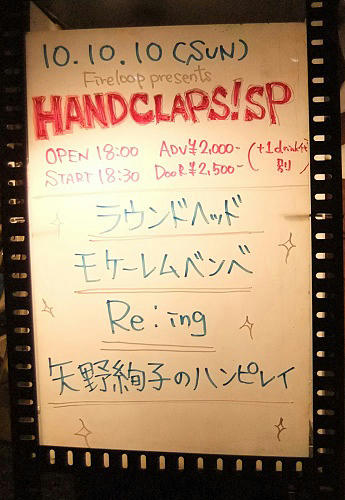 10.10.10 (SUN)
Fireloop presents
HANDCLAPS!SP
OPEN 18:00 ADV ¥2,000- (+1drink代
START 18:30 DOOR ¥2,500- 別)
ラウンドヘッド
モケーレムベンベ
Re:ing
矢野絢子のハンピレイ